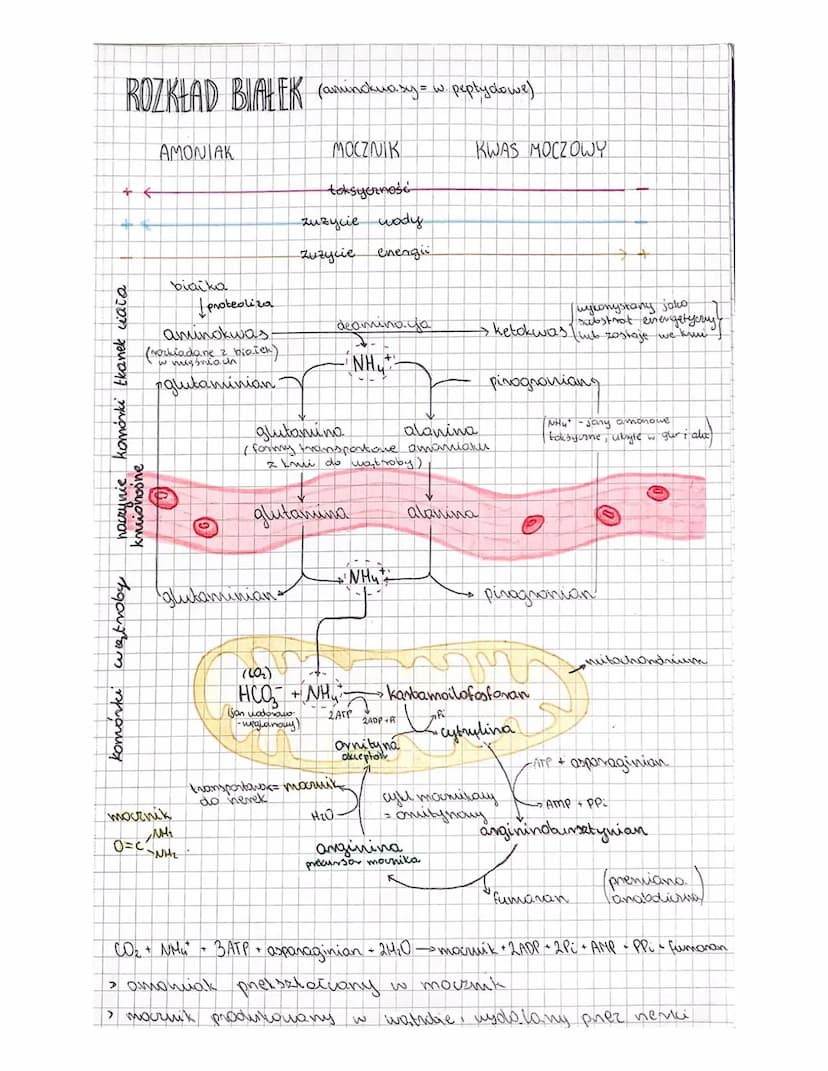 ROZKŁAD BIAŁEK (aminokwasy = w. peptydowe)
AMONIAK MOCZNIK KWAS MOCZOWY
+ toksyczność -
+ zużycie wody -
- zużycie energii +
białka
proteoliza
aminokwas deaminacja ketokwas
(rozkładane z białek w mięśniach)
(wykorzystany jako substrat energetyczny lub zostaje we krwi)
NH₄⁺
glutaminian pirogronian
glutamina alanina
(formy transportowe amoniaku
z krwi do wątroby)
(NH₄⁺ - jony amonowe
toksyczne, ukryte w glu i ala)
komórki tkanek ciała
naczynie krwionośne
komórki wątroby
glutamina alanina
NH₄⁺
glutaminian pirogronian
mitochondrium
(CO₂)
HCO₃⁻ + NH₄⁺ karbamoilofosforan
(jon wodorowo
-węglanowy)
2ATP 2ADP+Pi
Pi
ornityna
akceptor
cytrulina
ATP + asparaginian
transportowany = mocznik
do nerek
H₂O
cykl mocznikowy
= ornitynowy
AMP + PPi
mocznik
O=C NH₂
NH₂
argininobursztynian
arginina
prekursor mocznika
fumaran
(przemiana
anaboliczna)
CO₂ + NH₄⁺ + 3ATP + asparaginian + 2H₂O → mocznik + 2ADP + 2Pi + AMP + PPi + fumaran
> amoniak przekształcany w mocznik
> mocznik produkowany w wątrobie, wydalany przez nerki